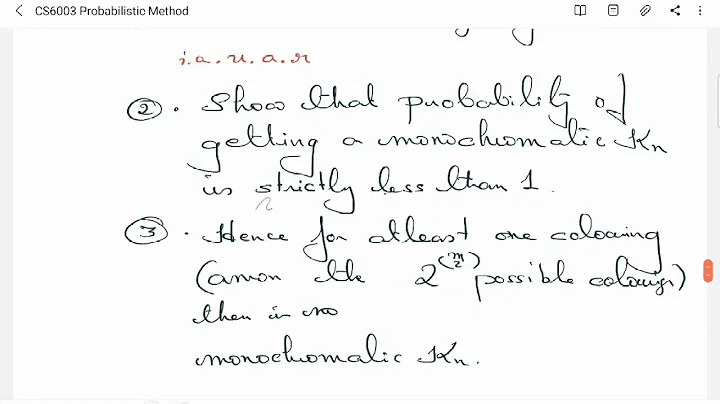 CS6003 Probabilistic Method
i.a.u.a.r
② . Show that probability of
getting a monochromatic Kn
is strictly less than 1.
③ . Hence for atleast one colouring
(amon the 2^(m 2) possible colourings)
then is no
monochromatic Kn.